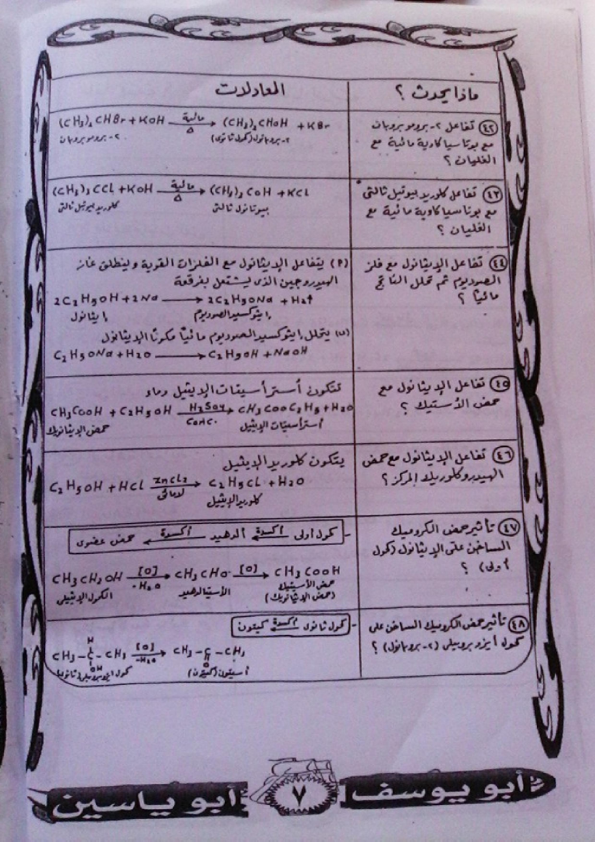 ماذا يحدث ؟
المعادلات
(٤٢) تفاعل ٢- بروموبروبان
مع بوتاسيا كاوية مائية مع
الغليان ؟
(CH3)2CHBr + KOH مائية Δ → (CH3)2CHOH + KBr
٢- بروموبروبان ٢- بروبانول (كحول ثانوى)
(٤٣) تفاعل كلوريد بيوتيل ثالثى
مع بوتاسيا كاوية مائية مع
الغليان ؟
(CH3)3CCl + KOH مائية Δ → (CH3)3COH + KCl
كلوريد بيوتيل ثالثى بيوتانول ثالثى
(٤٤) تفاعل الإيثانول مع فلز
الصوديوم ثم تحلل الناتج
مائياً ؟
(٢) يتفاعل الإيثانول مع الفلزات القوية وينطلق غاز
الهيدروجين الذى يشتعل بفرقعة
2C2H5OH + 2Na → 2C2H5ONa + H2↑
إيثانول إيثوكسيد الصوديوم
(ب) يتحلل إيثوكسيد الصوديوم مائياً مكوناً الإيثانول
C2H5ONa + H2O → C2H5OH + NaOH
(٤٥) تفاعل الإيثانول مع
حمض الأستيك ؟
تتكون أستر أسيتات الإيثيل وماء
CH3COOH + C2H5OH H2SO4 conc. → CH3COOC2H5 + H2O
حمض الإيثانويك أستر أسيتات الإيثيل
(٤٦) تفاعل الإيثانول مع حمض
الهيدروكلوريك المركز ؟
يتكون كلوريد الإيثيل
C2H5OH + HCl ZnCl2 لامائى → C2H5Cl + H2O
كلوريد الإيثيل
(٤٧) تأثير حمض الكروميك
الساخن على الإيثانول (كحول
أولى) ؟
- كحول أولى أكسدة الدهيد أكسدة حمض عضوى
CH3CH2OH [O] -H2O → CH3CHO [O] → CH3COOH
الكحول الإيثيلى الأسيتالدهيد حمض الأستيك
(حمض الإيثانويك)
(٤٨) تأثير حمض الكروميك الساخن على
كحول أيزوبروبيلى (٢- بروبانول) ؟
- كحول ثانوى أكسدة كيتون
H
CH3 - C - CH3 [O] -H2O → CH3 - C - CH3
OH O
كحول أيزوبروبيلى ثانوى أسيتون (كيتون)
أبو يوسف ٧ أبو ياسين